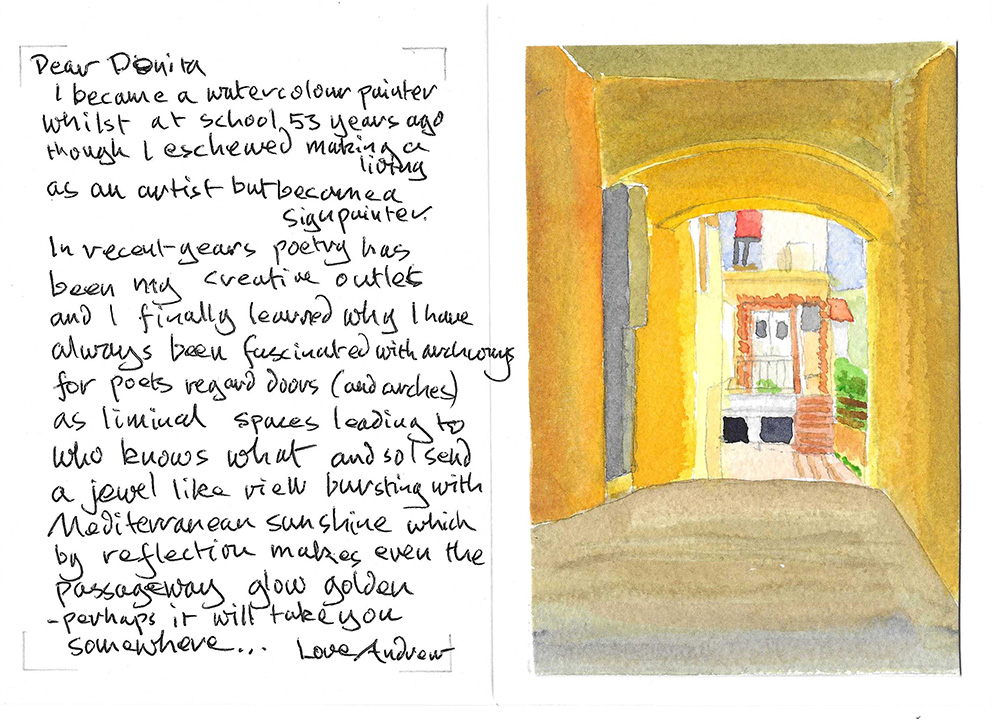 Dear Donita
I became a watercolour painter
whilst at school, 53 years ago
though I eschewed making a
living
as an artist but became a
signpainter.
In recent years poetry has
been my creative outlet
and I finally learned why I have
always been fascinated with archways
for poets regard doors (and arches)
as liminal spaces leading to
who knows what and so I send
a jewel like view bursting with
Mediterranean sunshine which
by reflection makes even the
passageway glow golden
- perhaps it will take you
somewhere...
Love, Andrew